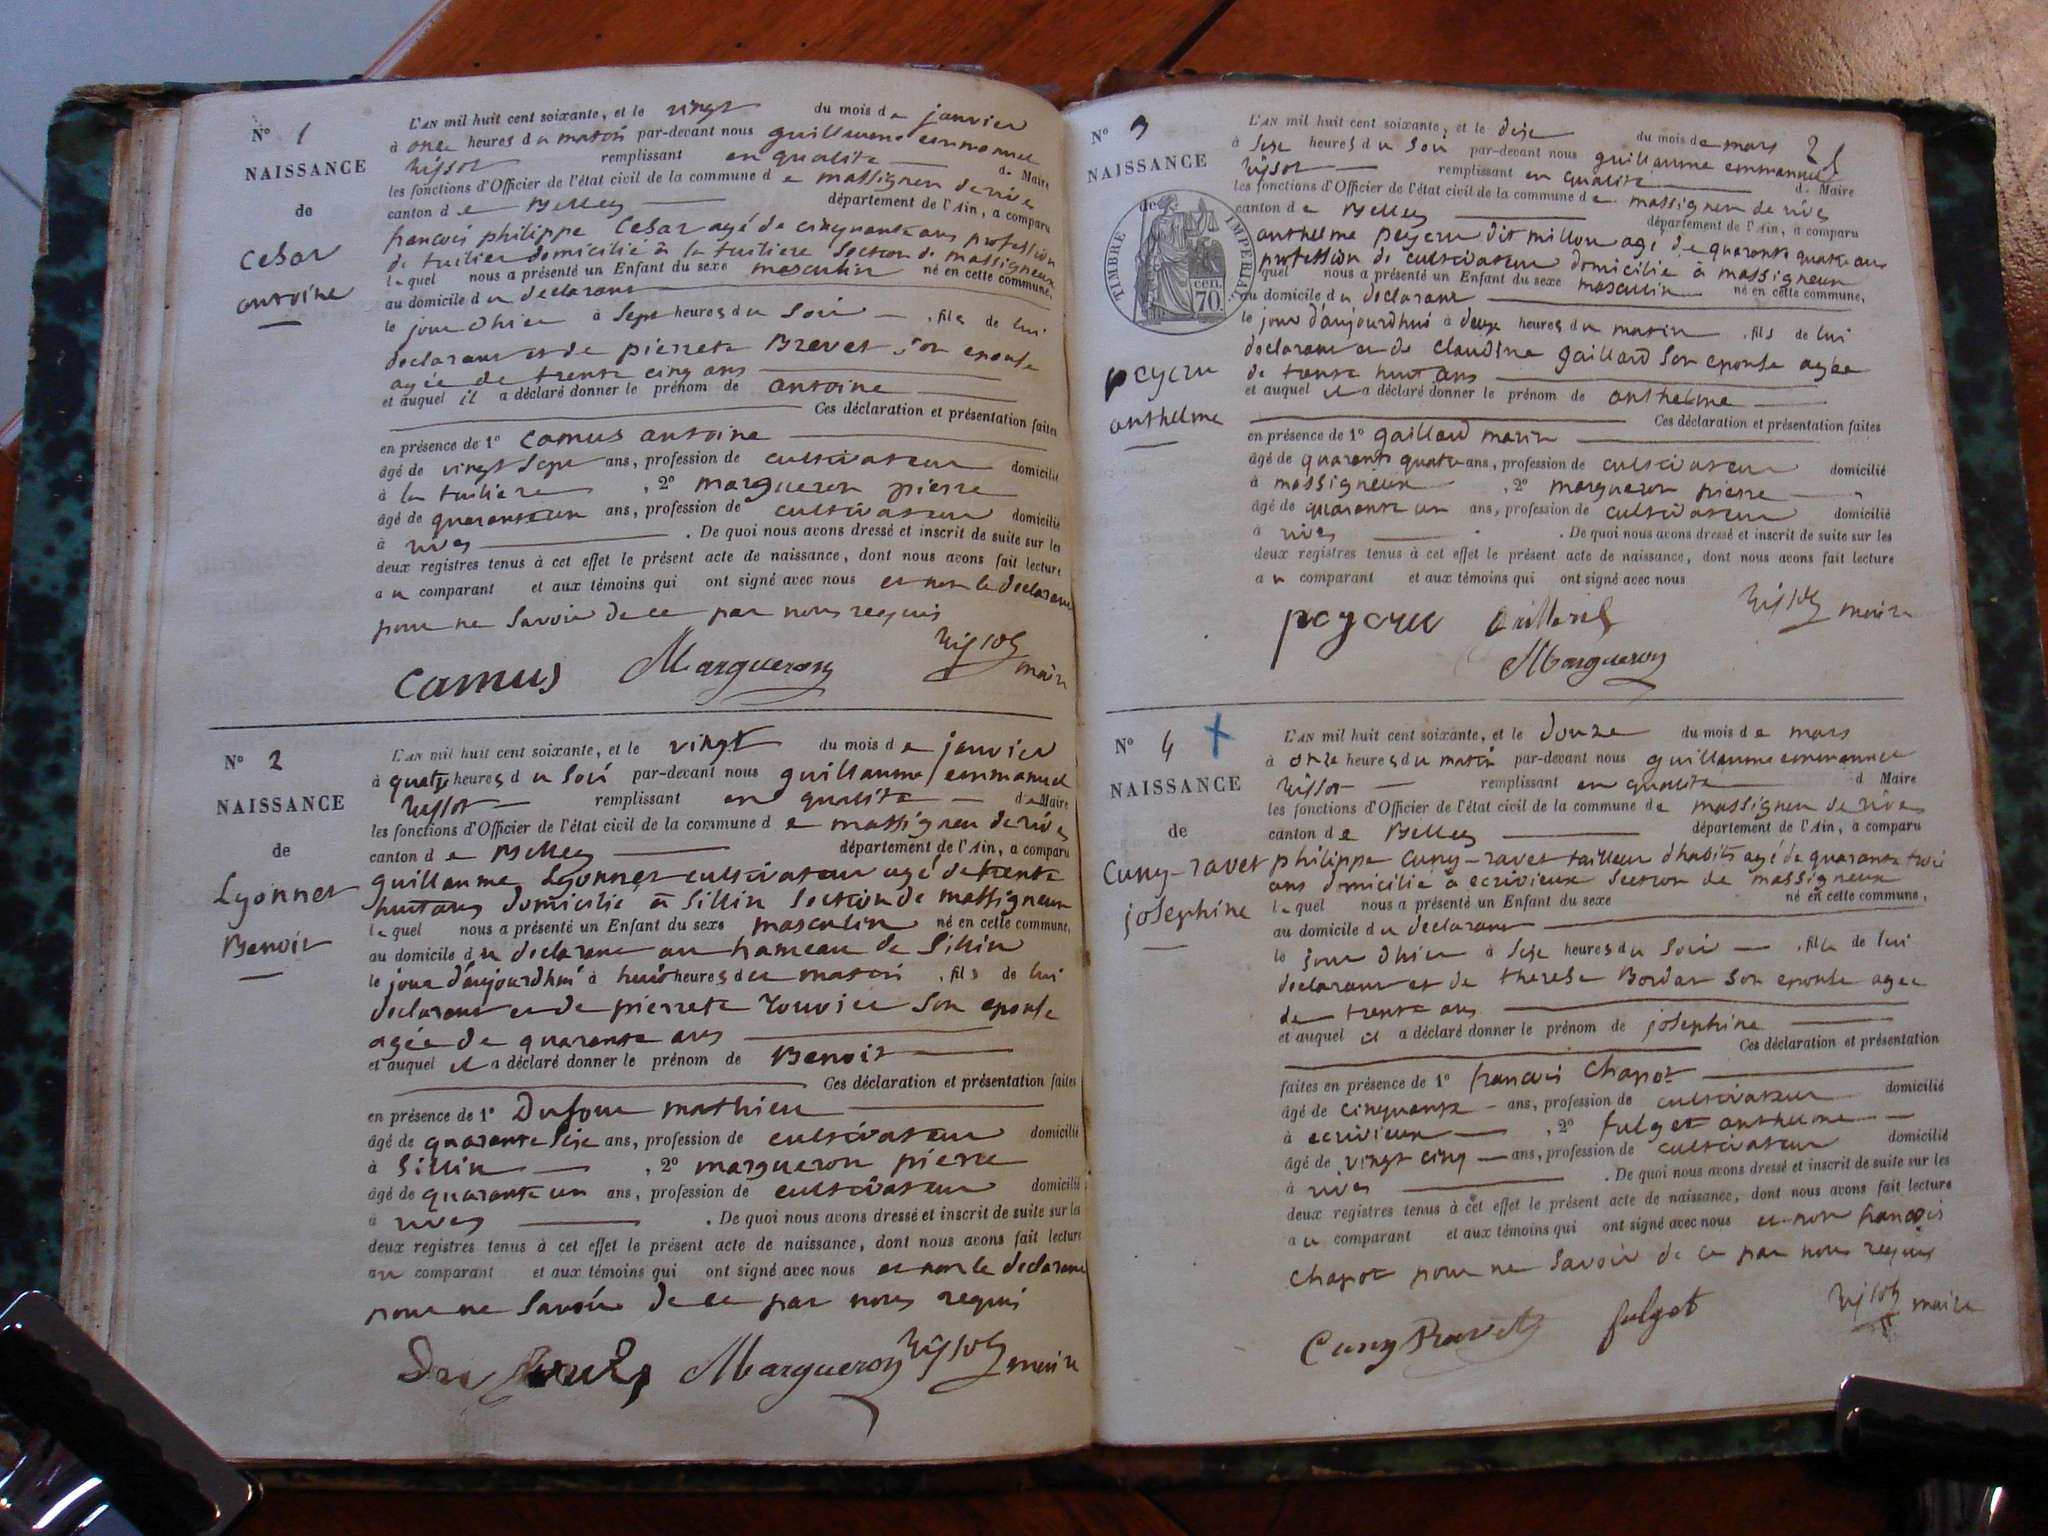 N° 1
NAISSANCE
de
Cesar
antoine
L'AN mil huit cent soixante, et le vingt du mois de janvier
à onze heures du matin par-devant nous guillaume emmanuel
Rissot remplissant en qualité de Maire
les fonctions d'Officier de l'état civil de la commune de massigneu de rives
canton de Belley département de l'Ain, a comparu
francois philippe Cesar agé de cinquante ans profession
de tuilier domicilié à la tuiliere Section de massigneux
lequel nous a présenté un Enfant du sexe masculin né en cette commune,
au domicile du declarant
le jour d'hier à Sept heures du Soir , fils de lui
declarant et de pierrete Brevet Son epouse
agée de trente cinq ans
et auquel il a déclaré donner le prénom de antoine
Ces déclaration et présentation faites
en présence de 1° Camus antoine
âgé de vingt Sept ans, profession de cultivateur domicilié
à la tuiliere , 2° margueron pierre
âgé de quarante un ans, profession de cultivateur domicilié
à rives . De quoi nous avons dressé et inscrit de suite sur les
deux registres tenus à cet effet le présent acte de naissance, dont nous avons fait lecture
au comparant et aux témoins qui ont signé avec nous et non le declarant
pour ne Savoir de ce par nous requis
Camus Margueron Rissot maire
N° 2
NAISSANCE
de
Lyonnet
Benoit
L'AN mil huit cent soixante, et le vingt du mois de janvier
à quatre heures du Soir par-devant nous guillaume emmanuel
Rissot remplissant en qualité de Maire
les fonctions d'Officier de l'état civil de la commune de massigneu de rives
canton de Belley département de l'Ain, a comparu
guillaume Lyonnet cultivateur agé de trente
huit ans domicilié à Sillin Section de massigneux
lequel nous a présenté un Enfant du sexe masculin né en cette commune,
au domicile du declarant au hameau de Sillin
le jour d'aujourdhui à huit heures du matin , fils de lui
declarant et de pierrete Rouvier Son epouse
agée de quarante ans
et auquel il a déclaré donner le prénom de Benoit
Ces déclaration et présentation faites
en présence de 1° Dufour mathieu
âgé de quarante Seize ans, profession de cultivateur domicilié
à Sillin , 2° margueron pierre
âgé de quarante un ans, profession de cultivateur domicilié
à rives . De quoi nous avons dressé et inscrit de suite sur les
deux registres tenus à cet effet le présent acte de naissance, dont nous avons fait lecture
au comparant et aux témoins qui ont signé avec nous et non le declarant
pour ne Savoir de ce par nous requis
Margueron Rissot maire
N° 3
NAISSANCE
de
TIMBRE IMPERIAL
70 cen.
peycru
anthelme
L'AN mil huit cent soixante, et le dise du mois de mars
à Sise heures du Soir par-devant nous guillaume emmanuel
Rissot remplissant en qualité de Maire
les fonctions d'Officier de l'état civil de la commune de massigneu de rives
canton de Belley département de l'Ain, a comparu
anthelme peycru dit millon agé de quarante quatre ans
profession de cultivateur domicilié à massigneux
quel nous a présenté un Enfant du sexe masculin né en cette commune,
au domicile du declarant
le jour d'aujourdhui à deux heures du matin , fils de lui
declarant et de claudine gaillard Son epouse agée
de trente huit ans
et auquel il a déclaré donner le prénom de anthelme
Ces déclaration et présentation faites
en présence de 1° gaillard marin
âgé de quarante quatre ans, profession de cultivateur domicilié
à massigneux , 2° margueron pierre
âgé de quarante un ans, profession de cultivateur domicilié
à rives . De quoi nous avons dressé et inscrit de suite sur les
deux registres tenus à cet effet le présent acte de naissance, dont nous avons fait lecture
au comparant et aux témoins qui ont signé avec nous
peycru Rissot maire
Margueron
N° 4 +
NAISSANCE
de
Cuny-ravet
josephine
L'AN mil huit cent soixante, et le douze du mois de mars
à onze heures du matin par-devant nous guillaume emmanuel
Rissot remplissant en qualité d Maire
les fonctions d'Officier de l'état civil de la commune de massigneu de rives
canton de Belley département de l'Ain, a comparu
philippe Cuny-ravet tailleur d'habits agé de quarante trois
ans domicilié à ecrivieux Section de massigneux
lequel nous a présenté un Enfant du sexe né en cette commune,
au domicile du declarant
le jour d'hier à Sise heures du Soir , fille de lui
declarant et de therese Bordat Son epouse agée
de trente ans
et auquel il a déclaré donner le prénom de josephine
Ces déclaration et présentation
faites en présence de 1° francois Chapot
âgé de cinquante ans, profession de cultivateur domicilié
à ecrivieux , 2° fulget anthelme
âgé de vingt cinq ans, profession de cultivateur domicilié
à rives . De quoi nous avons dressé et inscrit de suite sur les
deux registres tenus à cet effet le présent acte de naissance, dont nous avons fait lecture
au comparant et aux témoins qui ont signé avec nous et non francois
Chapot pour ne Savoir de ce par nous requis
Cuny Ravet fulget Rissot maire